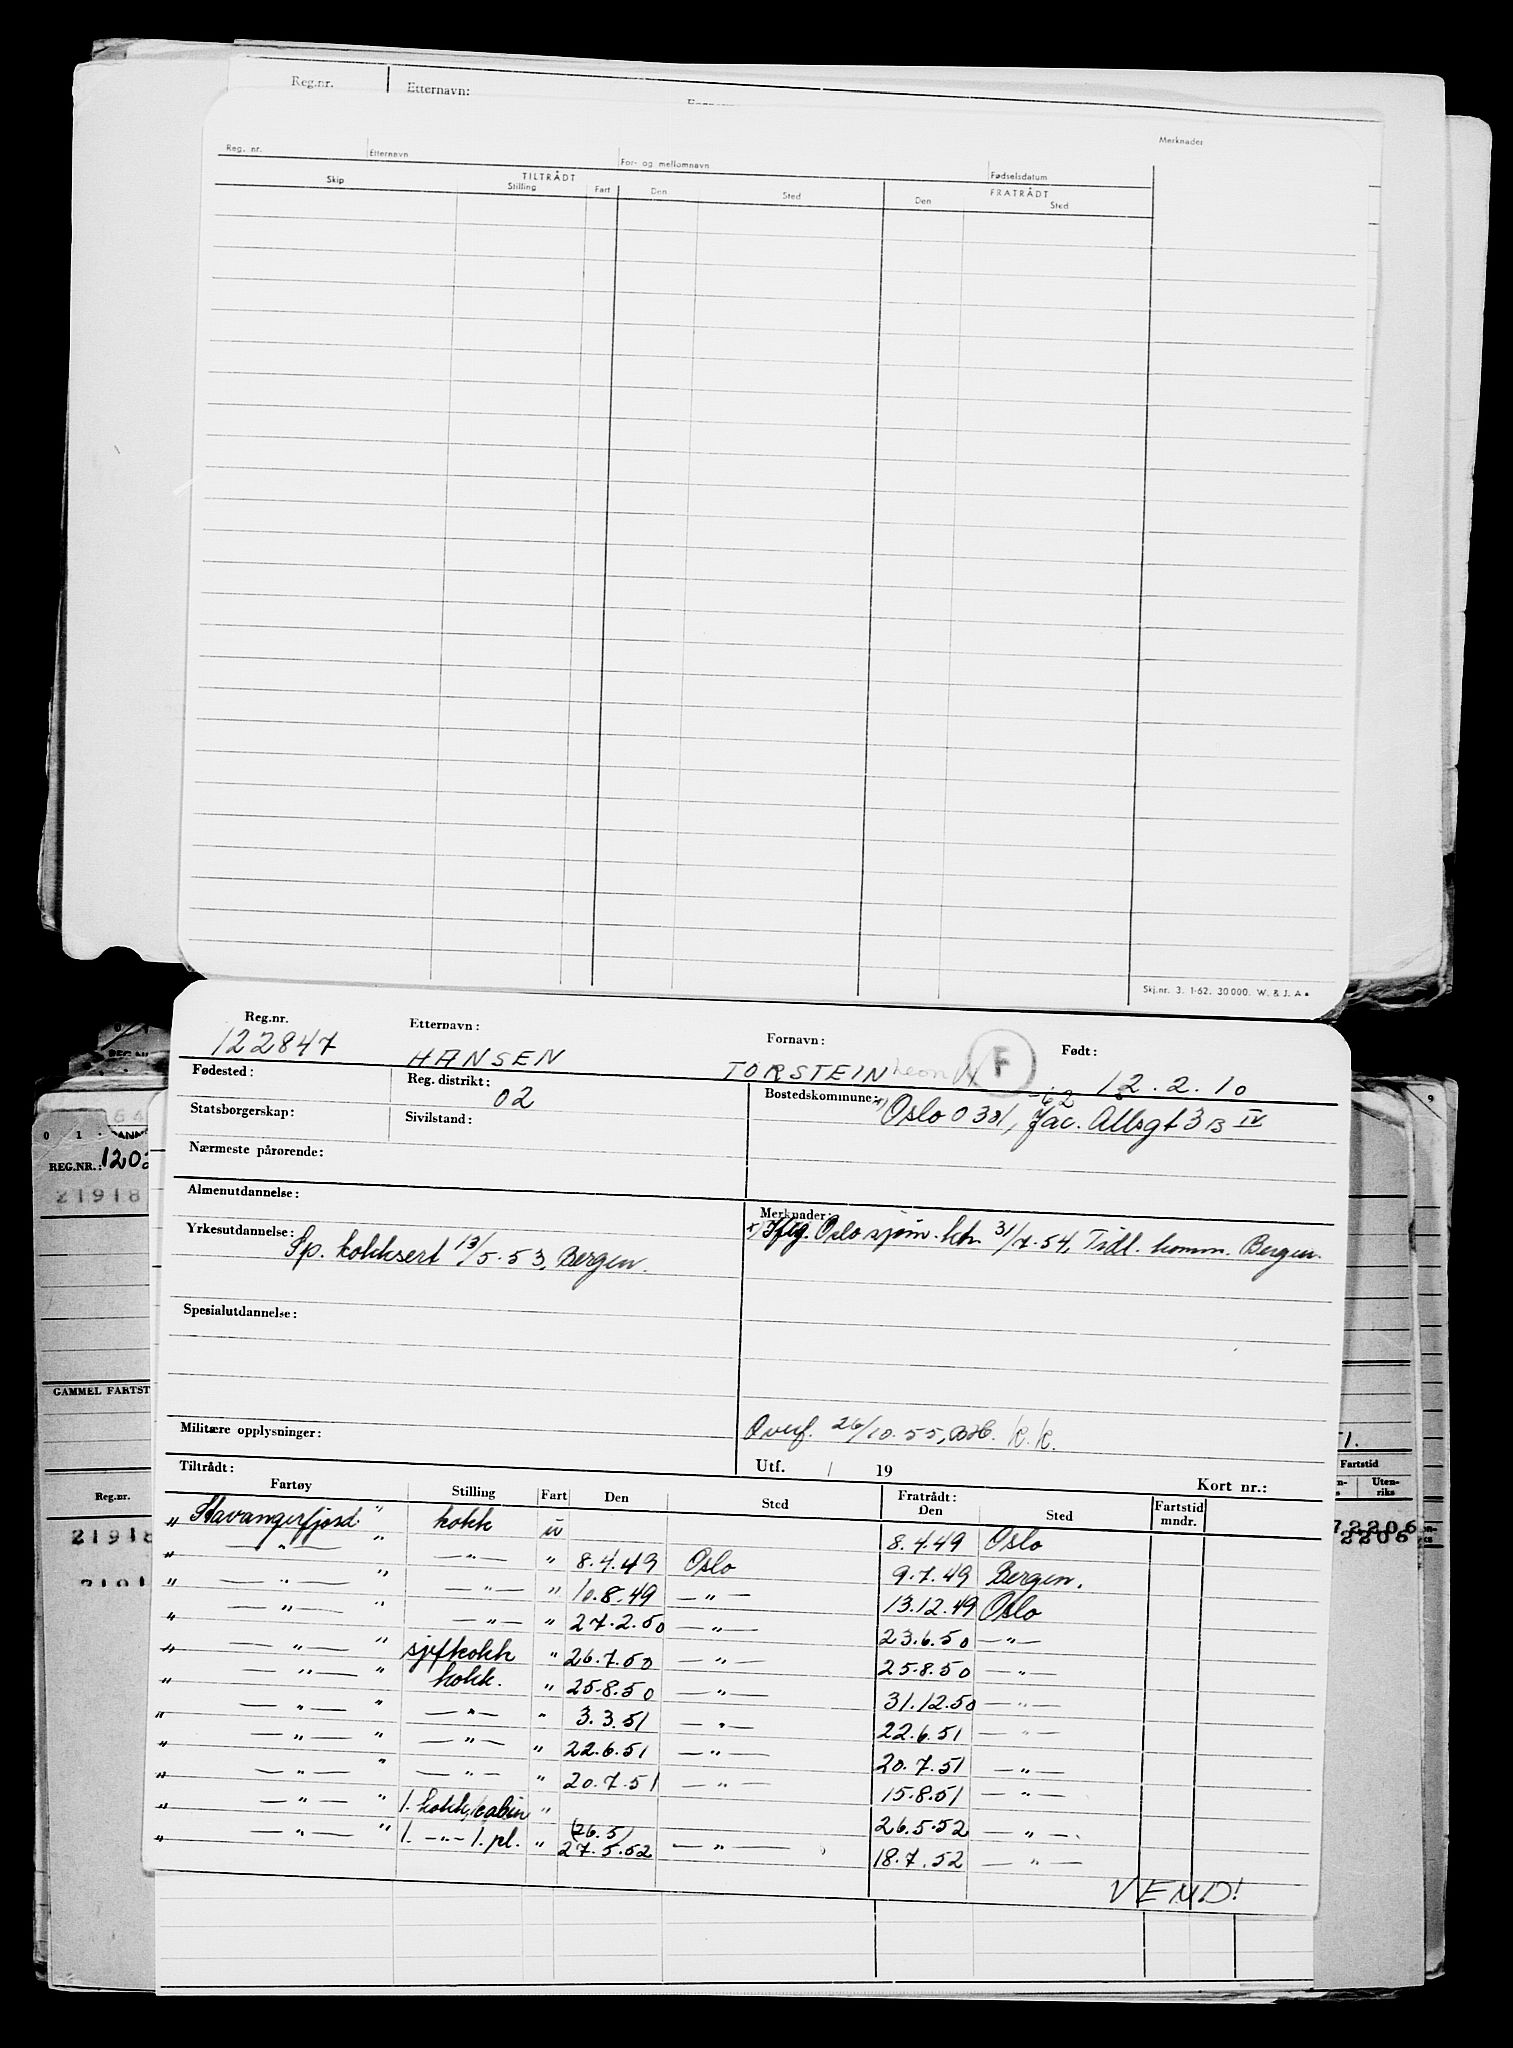 Reg.nr. Etternavn:
Merknader
Reg. nr. Etternavn For- og mellomnavn Fødselsdatum
TILTRÅDT FRATRÅDT
Skip Stilling Fart Den Sted Den Sted
Skj.nr. 3. 1-62. 30 000. W. & J. A
Reg.nr. Etternavn: Fornavn: Født:
122847 HANSEN TORSTEIN F 12.2.10
Fødested: Reg. distrikt: 02 Bostedskommune: x) Oslo 0301, Jac. Allsgt 3 B IV
-62
Statsborgerskap: Sivilstand:
Nærmeste pårørende:
Almenutdannelse:
Merknader:
Yrkesutdannelse: Sp. kokksert 13/5-53, Bergen.
x) Iflg. Oslo sjøm. ktr. 31/7-54, Tidl. komm. Bergen.
Spesialutdannelse:
Militære opplysninger: Overf. 26/10.55, k.k.
Utf. / 19 Kort nr.:
Tiltrådt: Fratrådt:
Fartøy Stilling Fart Den Sted Den Sted Fartstid mndr.
" Stavangerfjord " kokk u 8.4.49 Oslo
" — " — " — " — " 8.4.49 Oslo 9.7.49 Bergen.
" — " — " — " — " 10.8.49 — " — 13.12.49 Oslo
" — " — " — " — " 27.2.50 — " — 23.6.50 — " —
" — " — " sjefkokk " 26.7.50 — " — 25.8.50 — " —
" — " — " kokk. " 25.8.50 — " — 31.12.50 — " —
" — " — " — " — " 3.3.51 — " — 22.6.51 — " —
" — " — " — " — " 22.6.51 — " — 20.7.51 — " —
" — " — " — " — " 20.7.51 — " — 15.8.51 — " —
" — " — " 1. kokk, cabin " 26.5.52 — " —
" — " — " 1. — " — 1. pl. " (26.5) 27.5.52 — " — 18.7.52 — " —
VEND!
REG.NR.: 120
21918
GAMMEL FARTST
Reg.nr.
21918
Fartstid
Uten-
riks
72206
2206